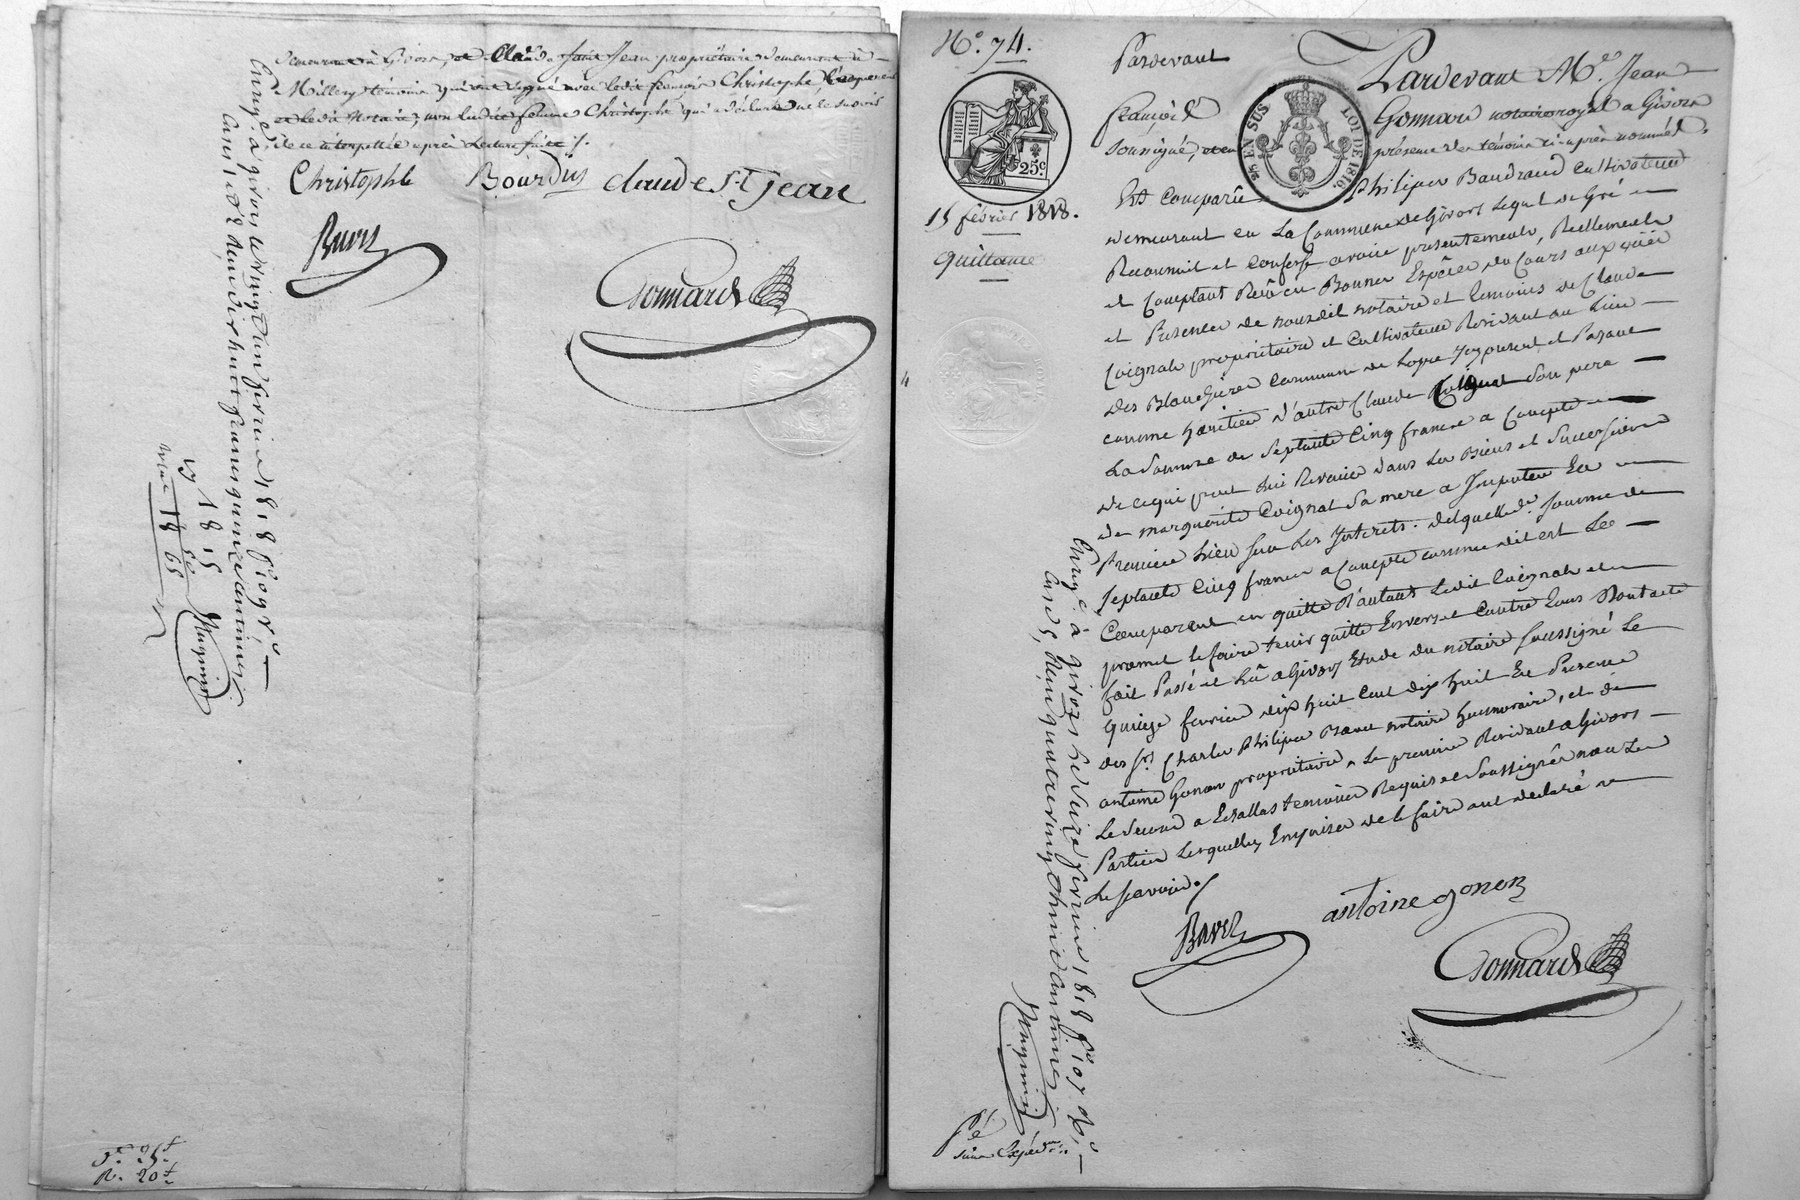 demeurant à Givors, et Claude Saint Jean propriétaire demeurant à
Millery témoins qui ont signé avec ledit françois Christophe,
et ledit Notaire, non ladite femme Christophe qui a déclaré ne le savoir
de ce interpellée après Lecture faite ./.
Christophle Bourdin claude St jean
Bavet
Gonnard
Enregé à givors le vingt un fevrier 1818 fo 109 ro
Reçu dix huit francs quinze centimes
18 15
1 80
19 65
25
R. 20
No. 74.
25c
15 février 1818.
Quittance
Pardevant
françois
soussigné, et en
Est Comparû
25 EN SUS LOI DE 1816.
Pardevant Me. Jean
Gonnard notaire royal a Givors
présence des témoins ci-après nommés.
Philipe Baudrand Cultivateur
demeurant en La Commune de Givors Lequel de Gré
Reconnoit et Confesse avoir presentement, Reellement
et Comptant Reçu en Bonnes Espèces du Cours aux vües
et Presence de nousdit notaire et temoins de Claude
Coignat propriétaire et Cultivateur Residant au Lieu
Des Blanchères Commune de Loyre Icy présent et Payant
comme heritier d'autre Claude Coignat Son pere
La Somme de Septante Cinq francs a Compte
de ce qui peut lui Revenir dans Les Biens et Succession
de marguerite Coignat Sa mere a Imputer En
Premier Lieu sur Les Interets. delquelle de. somme de
septante Cinq francs a Compte comme dit est Le
Comparant en quitte d'autant Ledit Coignat et
promet le faire tenir quitte Envers et Contre tous Dont acte
fait Passé et Lû a Givors Etude du notaire soussigné Le
Quinze fevrier dix huit Cent dix huit En Presence
des Srs. Charles Philipe Bavet notaire honnoraire, et de
antoine Gonon propriétaire, Le premier Residant a Givors
Le Second a Echallas temoins Requis et Soussignés non Les
Parties Lesquelles Enquises de le faire ont declaré ne
Le Scavoir ./.
Bavet
antoine gonon
Gonnard
Enregé à givors le seize fevrier 1818 fo 107 Vo
Reçu quatre vingt huit centimes
fé
une Expédon.